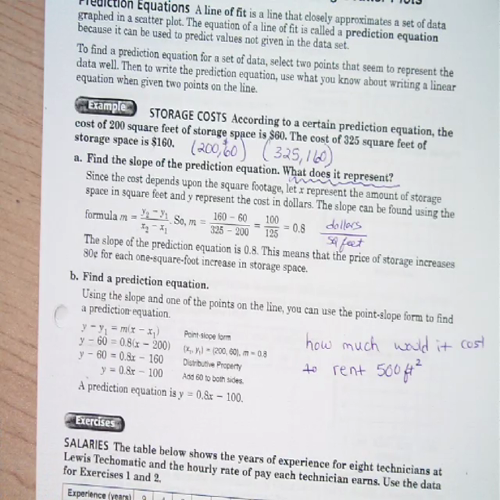 Prediction Equations A line of fit is a line that closely approximates a set of data
graphed in a scatter plot. The equation of a line of fit is called a prediction equation
because it can be used to predict values not given in the data set.
To find a prediction equation for a set of data, select two points that seem to represent the
data well. Then to write the prediction equation, use what you know about writing a linear
equation when given two points on the line.
Example STORAGE COSTS According to a certain prediction equation, the
cost of 200 square feet of storage space is $60. The cost of 325 square feet of
storage space is $160. (200,60) (325,160)
a. Find the slope of the prediction equation. What does it represent?
Since the cost depends upon the square footage, let x represent the amount of storage
space in square feet and y represent the cost in dollars. The slope can be found using the
formula m = y₂ − y₁ / x₂ − x₁. So, m = 160 − 60 / 325 − 200 = 100 / 125 = 0.8 dollars / sq feet
The slope of the prediction equation is 0.8. This means that the price of storage increases
80¢ for each one-square-foot increase in storage space.
b. Find a prediction equation.
Using the slope and one of the points on the line, you can use the point-slope form to find
a prediction equation.
y − y₁ = m(x − x₁) Point-slope form
y − 60 = 0.8(x − 200) (x₁, y₁) = (200, 60), m = 0.8
y − 60 = 0.8x − 160 Distributive Property
y = 0.8x − 100 Add 60 to both sides.
A prediction equation is y = 0.8x − 100.
how much would it cost
to rent 500 ft²
Exercises
SALARIES The table below shows the years of experience for eight technicians at
Lewis Techomatic and the hourly rate of pay each technician earns. Use the data
for Exercises 1 and 2.
Experience (years)